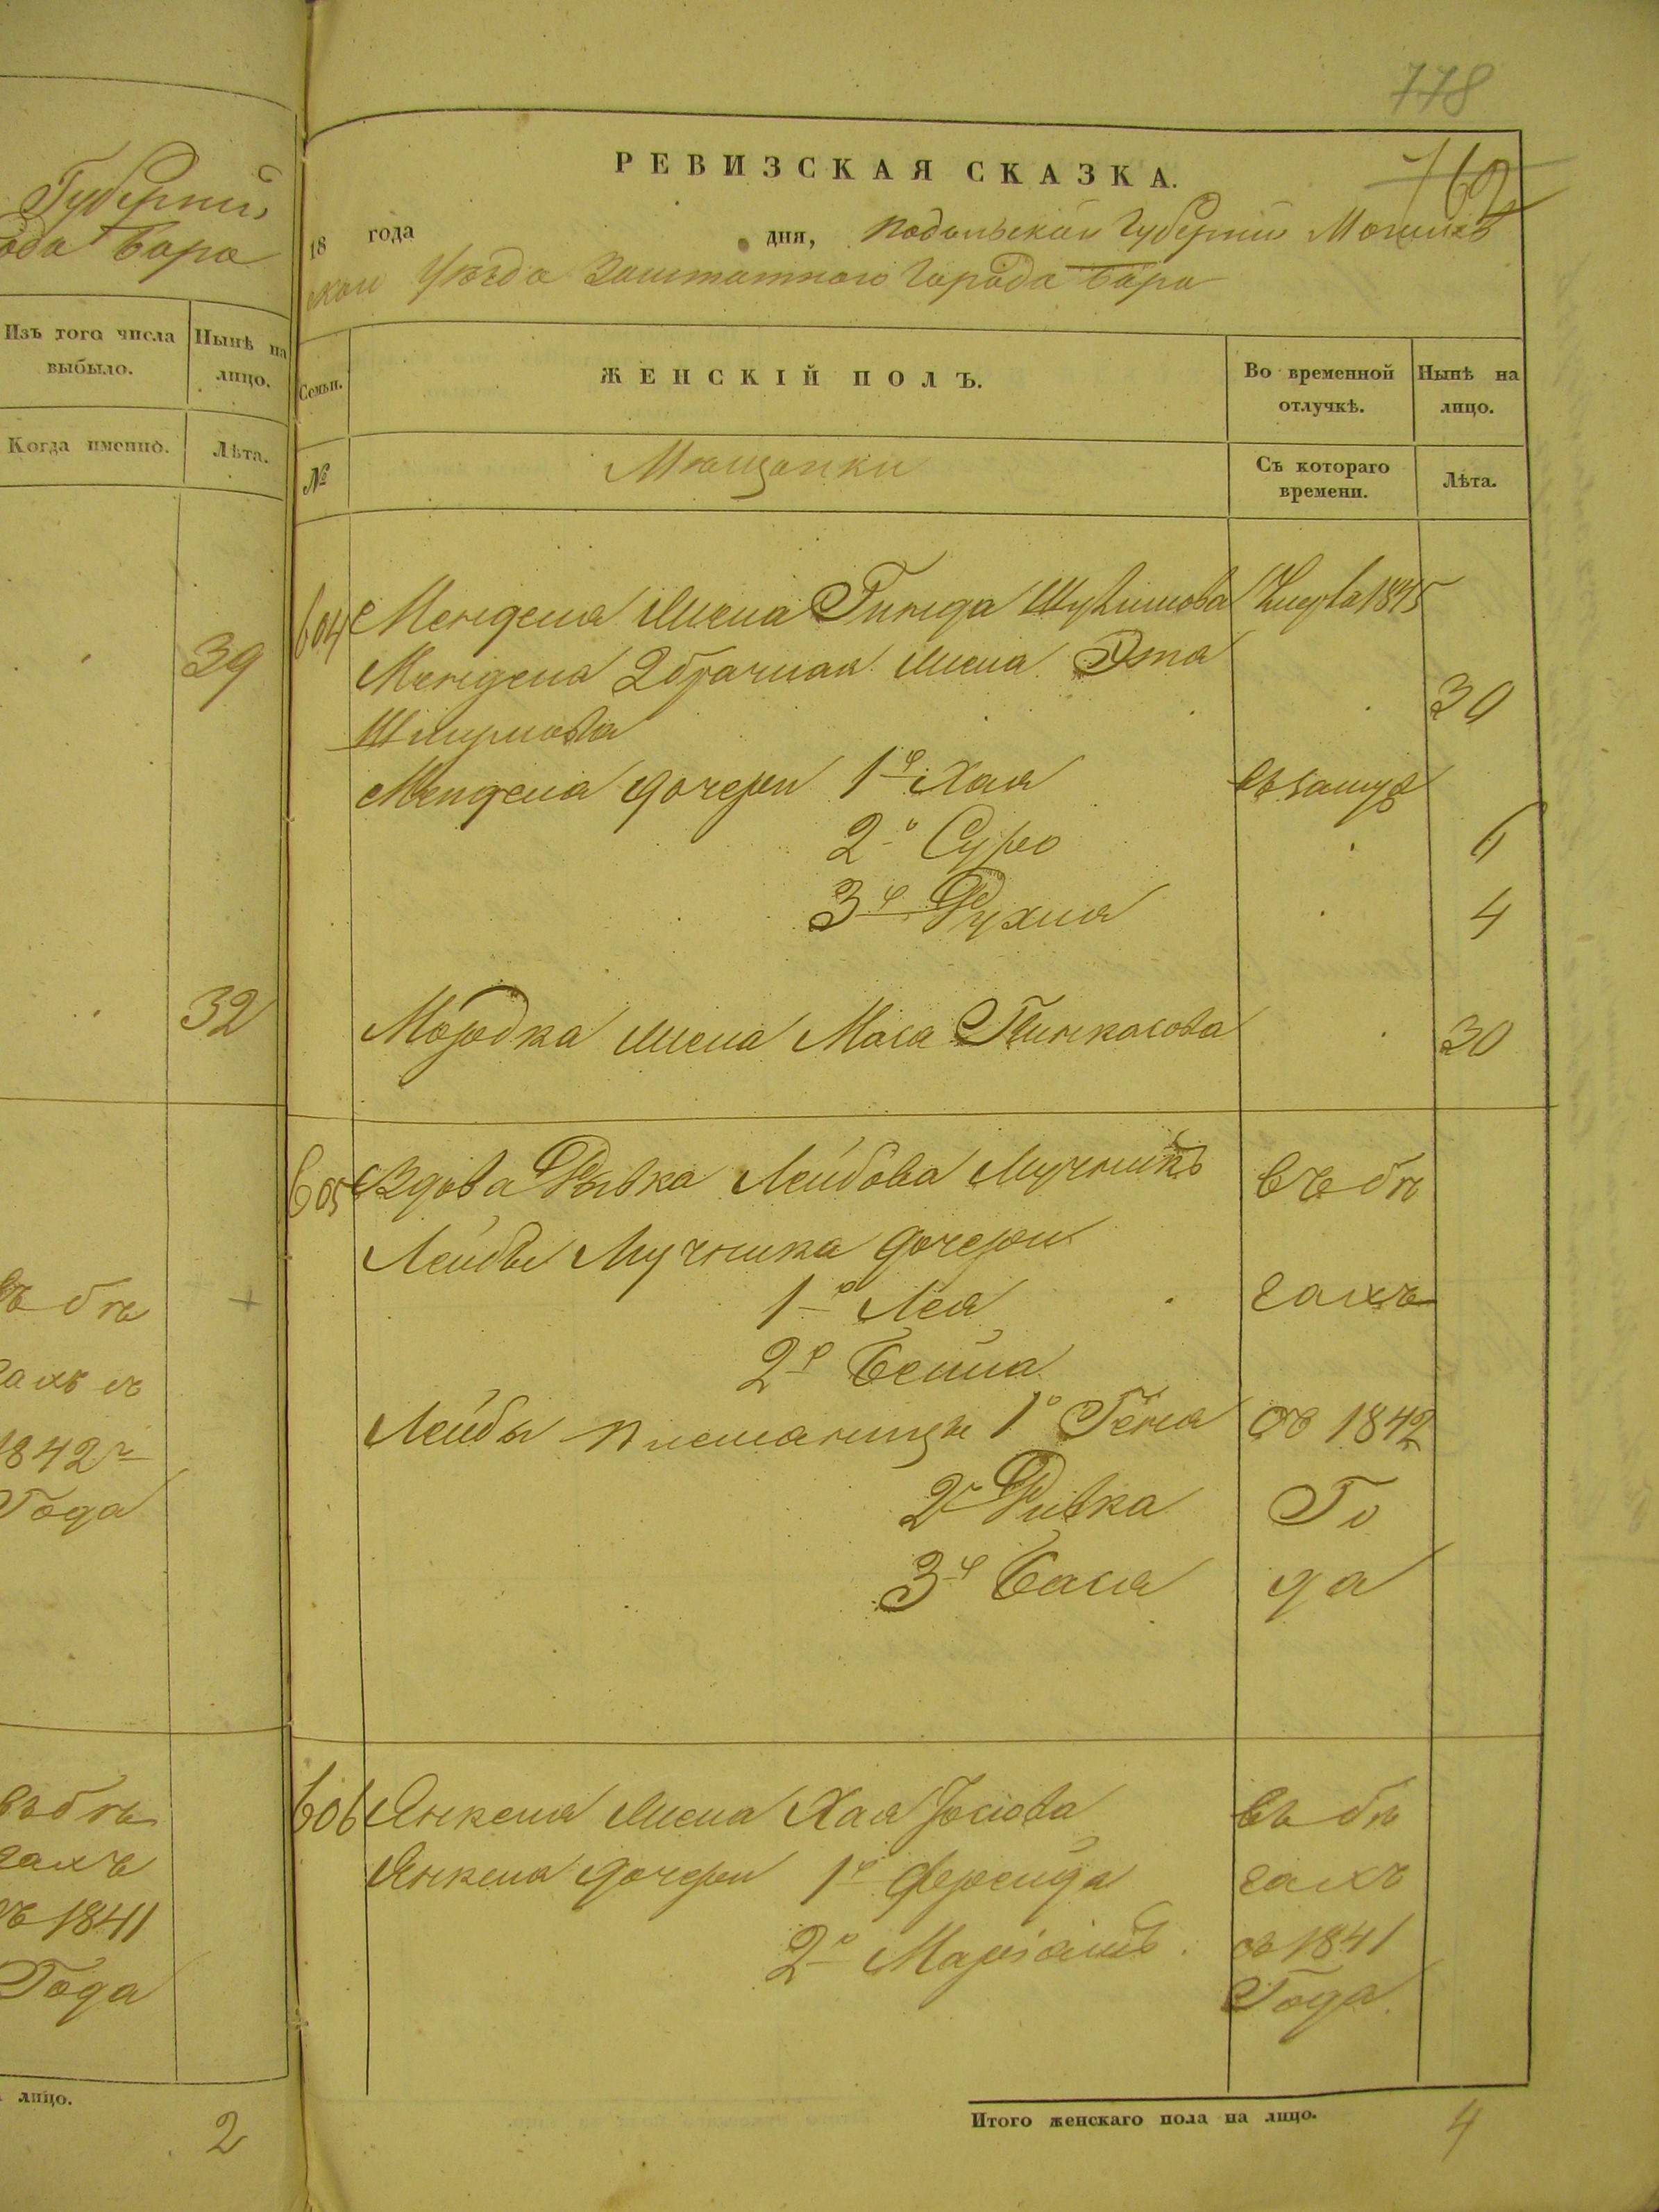 778
Губернии
ода Бара
Изъ того числа выбыло.
Нынѣ на лицо.
Когда именно.
Лѣта.
39
32
въ бѣ
гахъ съ
1842 г
Года
въ бѣ
гахъ
съ 1841
Года
лицо.
2
РЕВИЗСКАЯ СКАЗКА.
769
18 года дня, Подольской Губернии Могилев
ской Уѣзда Заштатного Города Бара
Семьи.
ЖЕНСКІЙ ПОЛЪ.
Во временной отлучкѣ.
Нынѣ на лицо.
№
Мѣщанки
Съ котораго времени.
Лѣта.
604 Менделя жена Гинда 1845
Менделя 2 брачная жена Эта 30
Шмулиова
Менделя дочери 1я Хая въ замуж
2я Сура 6
3я Рухля 4
Мордка жена Маса Пинкасова 30
605 Вдова Рывка Лейбова Мучникъ въ бѣ
Лейбы Мучника дочери
1я Лея гахъ
2я Бейла
Лейбы племянницы 1я Геня съ 1842
2я Ривка Го
3я Бася да
606 Янкеля жена Хая Іосіова въ бѣ
Янкеля дочери 1я Фрейда гахъ
2я Маріамъ съ 1841
Года
Итого женскаго пола на лицо. 4